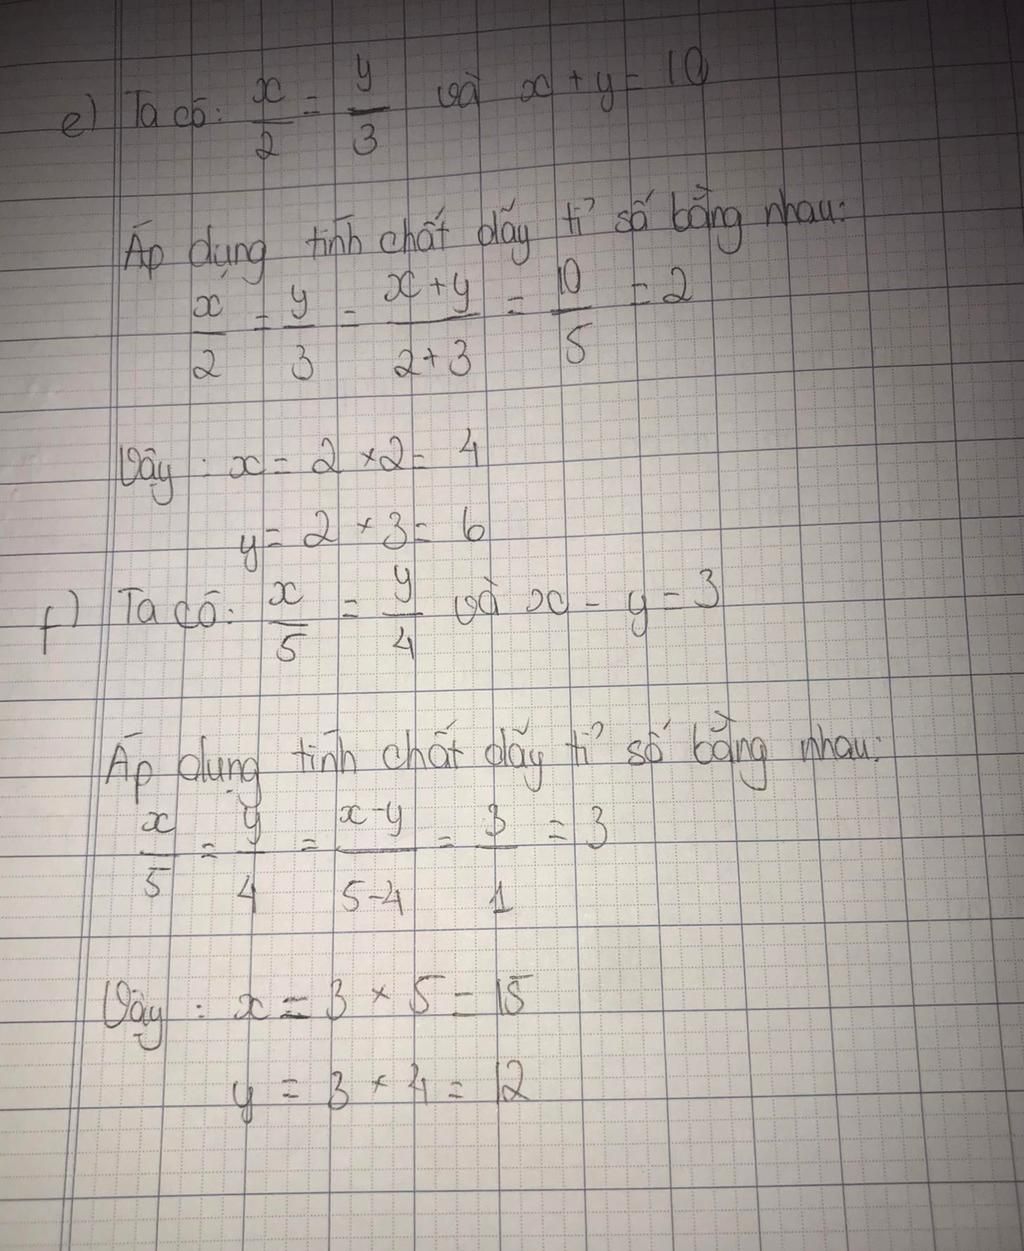 e) Ta có: x/2 = y/3 và x + y = 10
Áp dụng tính chất dãy tỉ số bằng nhau:
x/2 = y/3 = x + y/2 + 3 = 10/5 = 2
Vậy : x = 2 × 2 = 4
y = 2 × 3 = 6
f) Ta có: x/5 = y/4 và x - y = 3
Áp dụng tính chất dãy tỉ số bằng nhau:
x/5 = y/4 = x - y/5 - 4 = 3/1 = 3
Vậy : x = 3 × 5 = 15
y = 3 × 4 = 12